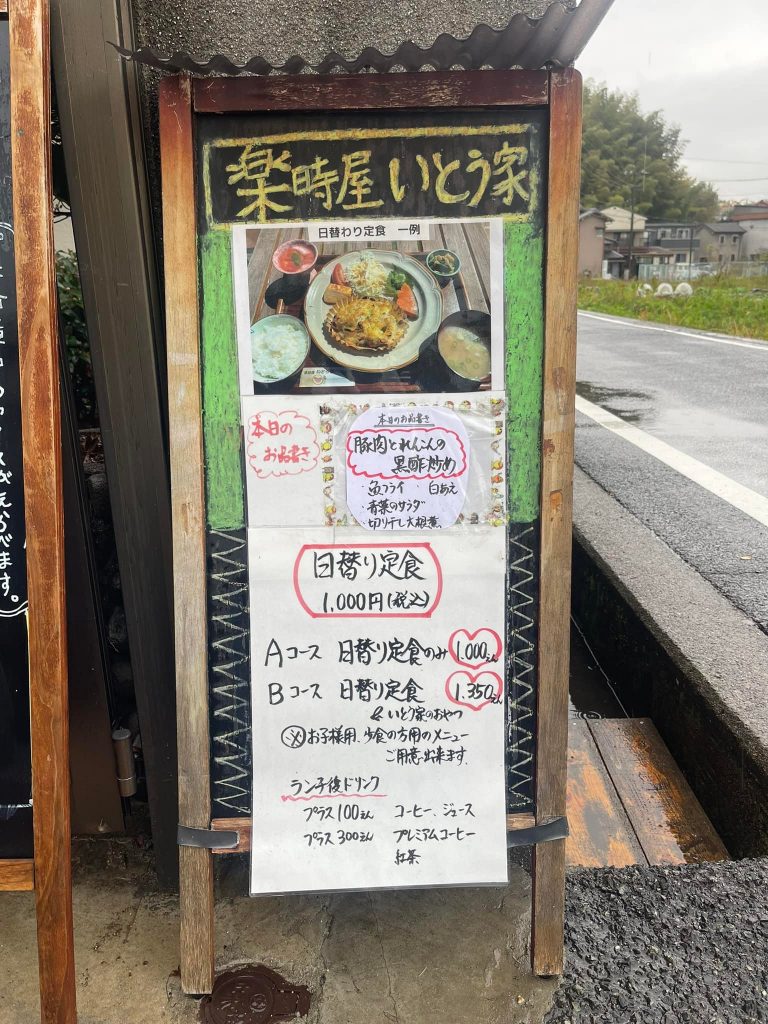 楽時屋 いとう家
日替わり定食 一例
本日の
お品書き
本日のお品書き
豚肉とれんこんの
黒酢炒め
魚フライ 白あえ
・青菜のサラダ
切り干し大根煮、
日替り定食
1,000円(税込)
Aコース 日替り定食のみ 1,000えん
Bコース 日替り定食 1,350えん
& いとう家のおやつ
※お子様用、少食の方用のメニュー
ご用意出来ます。
ランチ後ドリンク
プラス100えん コーヒー、ジュース
プラス300えん プレミアムコーヒー
紅茶